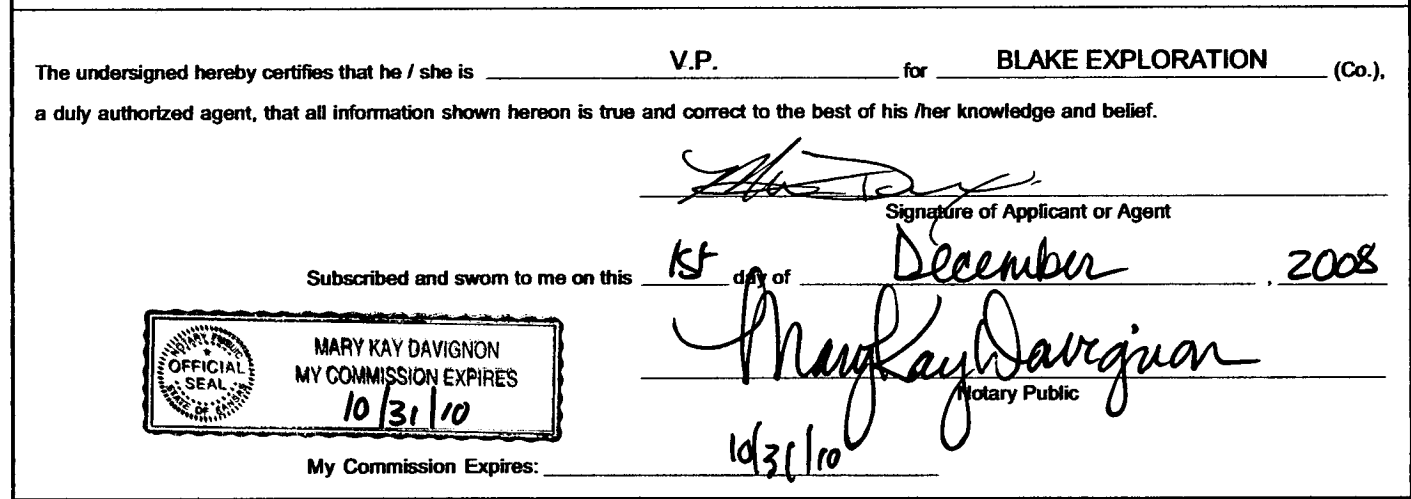 The undersigned hereby certifies that he / she is V.P. for BLAKE EXPLORATION (Co.),
a duly authorized agent, that all information shown hereon is true and correct to the best of his /her knowledge and belief.
Signature of Applicant or Agent
Subscribed and sworn to me on this 1st day of December , 2008
NOTARY PUBLIC
OFFICIAL
SEAL
STATE OF KANSAS
MARY KAY DAVIGNON
MY COMMISSION EXPIRES
10/31/10
Mary Kay Davignon
Notary Public
My Commission Expires: 10/31/10